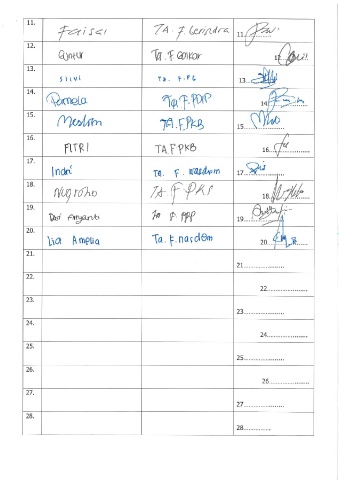 11. Faisal TA. F. Gerindra 11.
12. Guntur Ta. F Golkar 12.
13. SILVI TA. F. PG 13.
14. Pamela Ta. F. PDIP 14.
15. TA. F. PKB 15.
16. FITRI TA F PKB 16.
17. Indri Ta. F. nasdem 17.
18. Nugroho TA F PKS 18.
19. Dwi Aryanti Ta F PPP 19.
20. Lia Amelia Ta. F. nasdem 20.
21. 21.
22. 22.
23. 23.
24. 24.
25. 25.
26. 26.
27. 27.
28. 28.